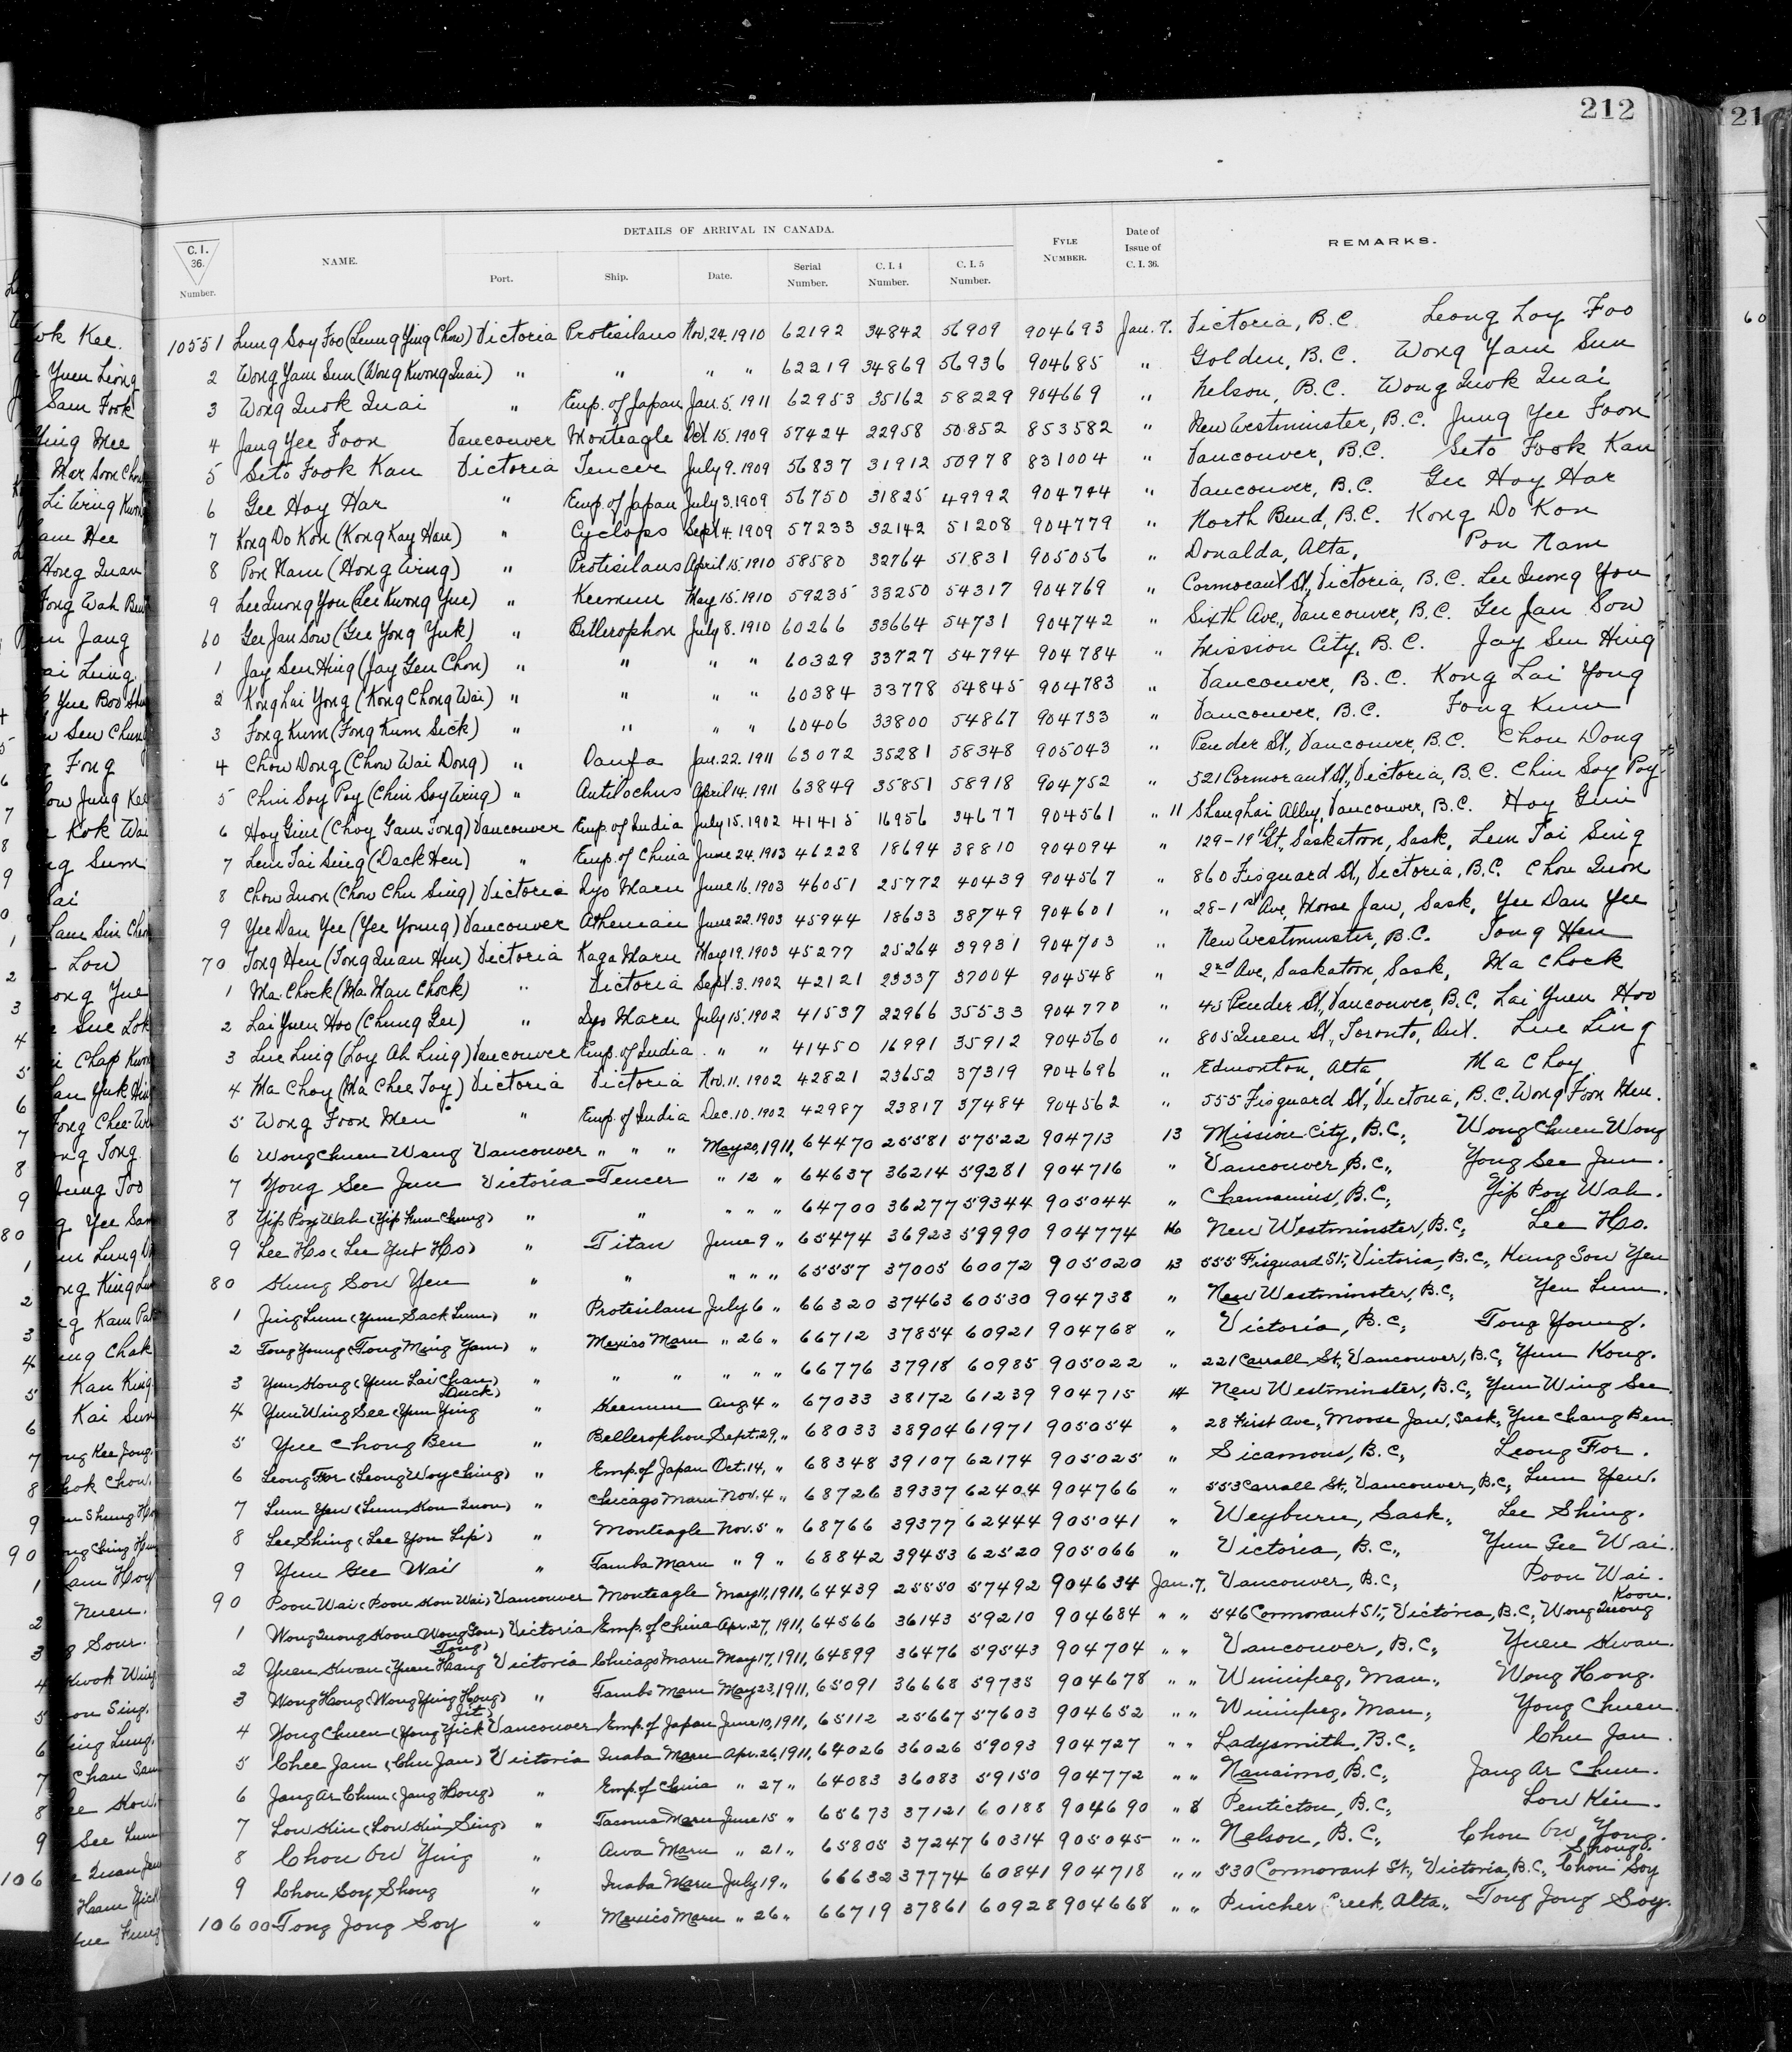 212
21
C. I. 36. Number.
NAME.
DETAILS OF ARRIVAL IN CANADA.
Port.
Ship.
Date.
Serial Number.
C. I. 4 Number.
C. I. 5 Number.
FYLE NUMBER.
Date of Issue of C. I. 36.
REMARKS.
10551 Lung Soy Foo (Leung Ying Chow) Victoria Protisilaus Nov. 24. 1910 62192 34842 56909 904693 Jan. 7. Victoria, B.C. Leong Loy Foo
2 Wong Yam Sun (Wong Kwong Quai) " " " " 62219 34869 56936 904685 " Golden, B.C. Wong Yam Sun
3 Wong Quok Quai " Emp. of Japan Jan. 5. 1911 62953 35162 58229 904669 " Nelson, B.C. Wong Quok Quai
4 Jang Yee Foon Vancouver Monteagle Oct. 15. 1909 57424 22958 50852 853582 " New Westminster, B.C. Jung Yee Foon
5 Seto Fook Kan Victoria Teucer July 9. 1909 56837 31912 50978 831004 " Vancouver, B.C. Seto Fook Kan
6 Gee Hoy Har " Emp. of Japan July 3. 1909 56750 31825 49992 904744 " Vancouver, B.C. Gee Hoy Har
7 Kong Do Kon (Kong Kay Han) " Cyclops Sept 4. 1909 57233 32142 51208 904779 " North Bend, B.C. Kong Do Kon
8 Pon Nam (Hong Wing) " Protisilaus April 15. 1910 58580 32764 51831 905056 " Donalda, Alta, Pon Nam
9 Lee Quong You (Lee Kwong Yue) " Keemun May 15. 1910 59235 33250 54317 904769 " Cormorant St, Victoria, B.C. Lee Quong You
60 Gee Jan Sow (Gee Yong Yuk) " Bellerophon July 8. 1910 60266 33664 54731 904742 " Sixth Ave, Vancouver, B.C. Gee Jan Sow
1 Jay Sen Hing (Jay Gen Chon) " " " " 60329 33727 54794 904784 " Mission City, B.C. Jay Sen Hing
2 Kong Lai Yong (Kong Chong Wai) " " " " 60384 33778 54845 904783 " Vancouver, B.C. Kong Lai Yong
3 Fong Kum (Fong Kum Sick) " " " " 60406 33800 54867 904733 " Vancouver, B.C. Fong Kum
4 Chow Dong (Chow Wai Dong) " Oanfa Jan. 22. 1911 63072 35281 58348 905043 " Pender St, Vancouver, B.C. Chou Dong
5 Chin Soy Poy (Chin Soy Wing) " Antilochus April 14. 1911 63849 35851 58918 904752 " 521 Cormorant St, Victoria, B.C. Chin Soy Poy
6 Hoy Gim (Choy Gam Tong) Vancouver Emp. of India July 15. 1902 41415 16956 34677 904561 " 11 Shanghai Alley, Vancouver, B.C. Hoy Gim
7 Lem Tai Sing (Dack Hen) " Emp. of China June 24. 1903 46228 18694 38810 904094 " 129-19th St, Saskatoon, Sask, Lem Tai Sing
8 Chow Quon (Chow Chu Sing) Victoria Iyo Maru June 16. 1903 46051 25772 40439 904567 " 860 Fisguard St, Victoria, B.C. Chow Quon
9 Yee Dan Yee (Yee Young) Vancouver Athenian June 22. 1903 45944 18633 38749 904601 " 28-1st Ave, Moose Jaw, Sask, Yee Dan Yee
70 Tong Hen (Tong Quan Hen) Victoria Kaga Maru May 19. 1903 45277 25264 39931 904703 " New Westminster, B.C. Tong Hen
1 Ma Chock (Ma Man Chock) " Victoria Sept. 3. 1902 42121 23337 37004 904548 " 2nd Ave, Saskatoon, Sask, Ma Chock
2 Lai Yuen Hoo (Chung Gee) " Iyo Maru July 15. 1902 41537 22966 35533 904770 " 45 Pender St, Vancouver, B.C. Lai Yuen Hoo
3 Lue Ling (Loy Ah Ling) Vancouver Emp. of India " " 41450 16991 35912 904560 " 805 Queen St, Toronto, Ont. Lue Ling
4 Ma Choy (Ma Chee Toy) Victoria Victoria Nov. 11. 1902 42821 23652 37319 904696 " Edmonton, Alta, Ma Choy
5 Wong Foon Men " Emp. of India Dec. 10. 1902 42987 23817 37484 904562 " 555 Fisguard St, Victoria, B.C. Wong Foon Men.
6 Wong Chuen Wong Vancouver " " " May 20, 1911, 64470 25581 57522 904713 13 Mission City, B.C., Wong Chuen Wong
7 Yong See Jun Victoria Teucer " 12 " 64637 36214 59281 904716 " Vancouver, B.C., Yong See Jun.
8 Yip Poy Wah (Yip Hun Chung) " " " " " 64700 36277 59344 905044 " Chemainus, B.C., Yip Poy Wah.
9 Lee Ho (Lee Yut Ho) " Titan June 9 " 65474 36923 59990 904774 16 New Westminster, B.C., Lee Ho.
80 Hung Sow Yen " " " " " 65557 37005 60072 905020 13 555 Fisguard St., Victoria, B.C., Hung Sow Yen
1 Jing Lum (Yum Sack Lum) " Protesilaus July 6 " 66320 37463 60530 904738 " New Westminster, B.C., Yen Lum.
2 Tong Young (Tong Ming Yam) " Mexico Maru " 26 " 66712 37854 60921 904768 " Victoria, B.C., Tong Young.
3 Yun Kong (Yun Lai Chan) " " " " " " 66776 37918 60985 905022 " 221 Carrall St, Vancouver, B.C, Yun Kong.
4 Yun Wing See (Yun Ying Duck) " Keemun Aug. 4 " 67033 38172 61239 904715 14 New Westminster, B.C., Yun Wing See.
5 Yue Chong Ben " Bellerophon Sept. 29, " 68033 38904 61971 905054 " 28 First Ave, Moose Jaw, Sask, Yue Chang Ben
6 Leong For (Leong Woy Ching) " Emp. of Japan Oct. 14, " 68348 39107 62174 905025 " Sicamous, B.C, Leong For.
7 Lum Yew (Lum Kon Quon) " Chicago Maru Nov. 4 " 68726 39337 62404 904766 " 553 Carrall St, Vancouver, B.C, Lum Yew.
8 Lee Shing (Lee Yon Lip) " Monteagle Nov. 5 " 68766 39377 62444 905041 " Weyburn, Sask., Lee Shing.
9 Yun Gee Wai " Tamba Maru " 9 " 68842 39453 62520 905066 " Victoria, B.C., Yun Gee Wai.
90 Poon Wai (Poon Kon Wai) Vancouver Monteagle May 11, 1911, 64439 25550 57492 904634 Jan. 7, Vancouver, B.C, Poon Wai.
1 Wong Quong Koon (Wong Gon Tong) Victoria Emp. of China Apr. 27, 1911, 64566 36143 59210 904684 " " 546 Cormorant St., Victoria, B.C, Wong Quong Koon.
2 Yuen Kwan (Yuen Hang Victoria Chicago Maru May 17, 1911, 64899 36476 59543 904704 " " Vancouver, B.C., Yuen Kwan.
3 Wong Hong (Wong Ying Hong) " Tamba Maru May 23, 1911, 65091 36668 59735 904678 " " Winnipeg, Man., Wong Hong.
4 Yong Chuen (Yong Yick Jit) Vancouver Emp. of Japan June 10, 1911, 65112 25667 57603 904652 " " Winnipeg, Man, Yong Chuen.
5 Chee Jam (Chu Jan) Victoria Inaba Maru Apr. 26, 1911, 64026 36026 59093 904727 " " Ladysmith, B.C., Chu Jan.
6 Jang Ar Chun (Jang Hong) " Emp. of China " 27 " 64083 36083 59150 904772 " " Nanaimo, B.C., Jang Ar Chun.
7 Low Kin (Low Kin Sing) " Tacoma Maru June 15 " 65673 37121 60188 904690 " 8 Penticton, B.C., Low Kin.
8 Chou On Ying " Awa Maru " 21 " 65805 37247 60314 905045 " " Nelson, B.C., Chou On Yong.
9 Chou Soy Shong " Inaba Maru July 19 " 66632 37774 60841 904718 " " 530 Cormorant St., Victoria, B.C, Chou Soy Shong.
10600 Tong Jong Soy " Mexico Maru " 26 " 66719 37861 60928 904668 " " Pincher Creek, Alta., Tong Jong Soy.